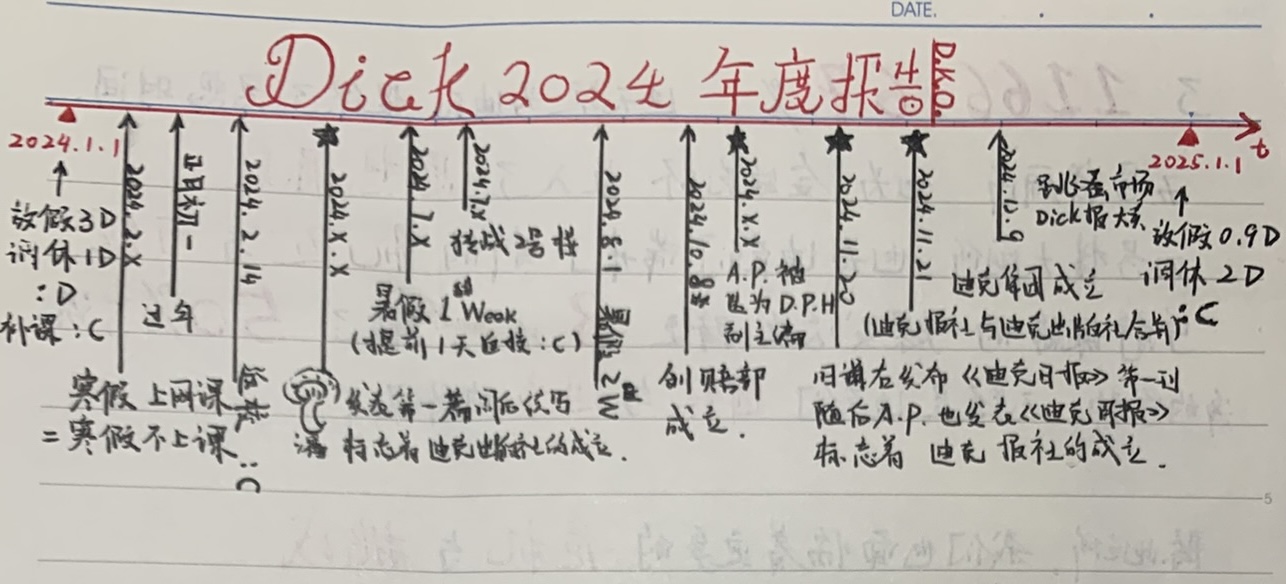 DATE.
Dick 2024 年度报告
D.K.O.
t
2024.1.1
放假3D
调休1D
:D
补课:C
2024.2.X
寒假 上网课
=寒假不上课
正月初一
过年
2024.2.14
返校 :C
2024.X.X
发表第一篇
标志着 迪克出版社的成立.
2024.7.X
暑假 1st Week
(提前1天返校:C)
2024.7.X
转战2号楼
2024.8.1 暑假 2nd W
2024.10.8
创赔部
成立.
2024.X.X
A.P. 被
为 D.P.H
副主编
2024.11.20
发布《迪克日报》第一刊
随后A.P.也发表《迪克周报》
标志着 迪克 报社的成立.
2024.11.21
(迪克报社与迪克出版社合并)
2024.12.9
迪克集团成立
市场
Dick报大卖
2025.1.1
放假0.9D
调休 2D
:C
5